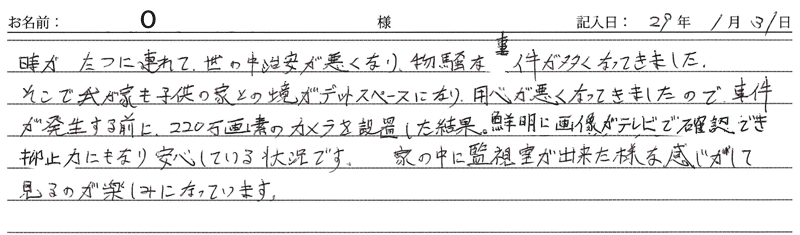 お名前： O 様 記入日： 29年 1月 31日
時が たつに連れて、世の中治安が悪くなり、物騒な事件が多くなってきました。
そこで我が家も子供の家との境がデットスペースになり、用心が悪くなってきましたので、事件
が発生する前に、220万画素のカメラを設置した結果。鮮明に画像がテレビで確認でき
抑止力にもなり安心している状況です。 家の中に監視室が出来た様な感じがして
見るのが楽しみになっています。